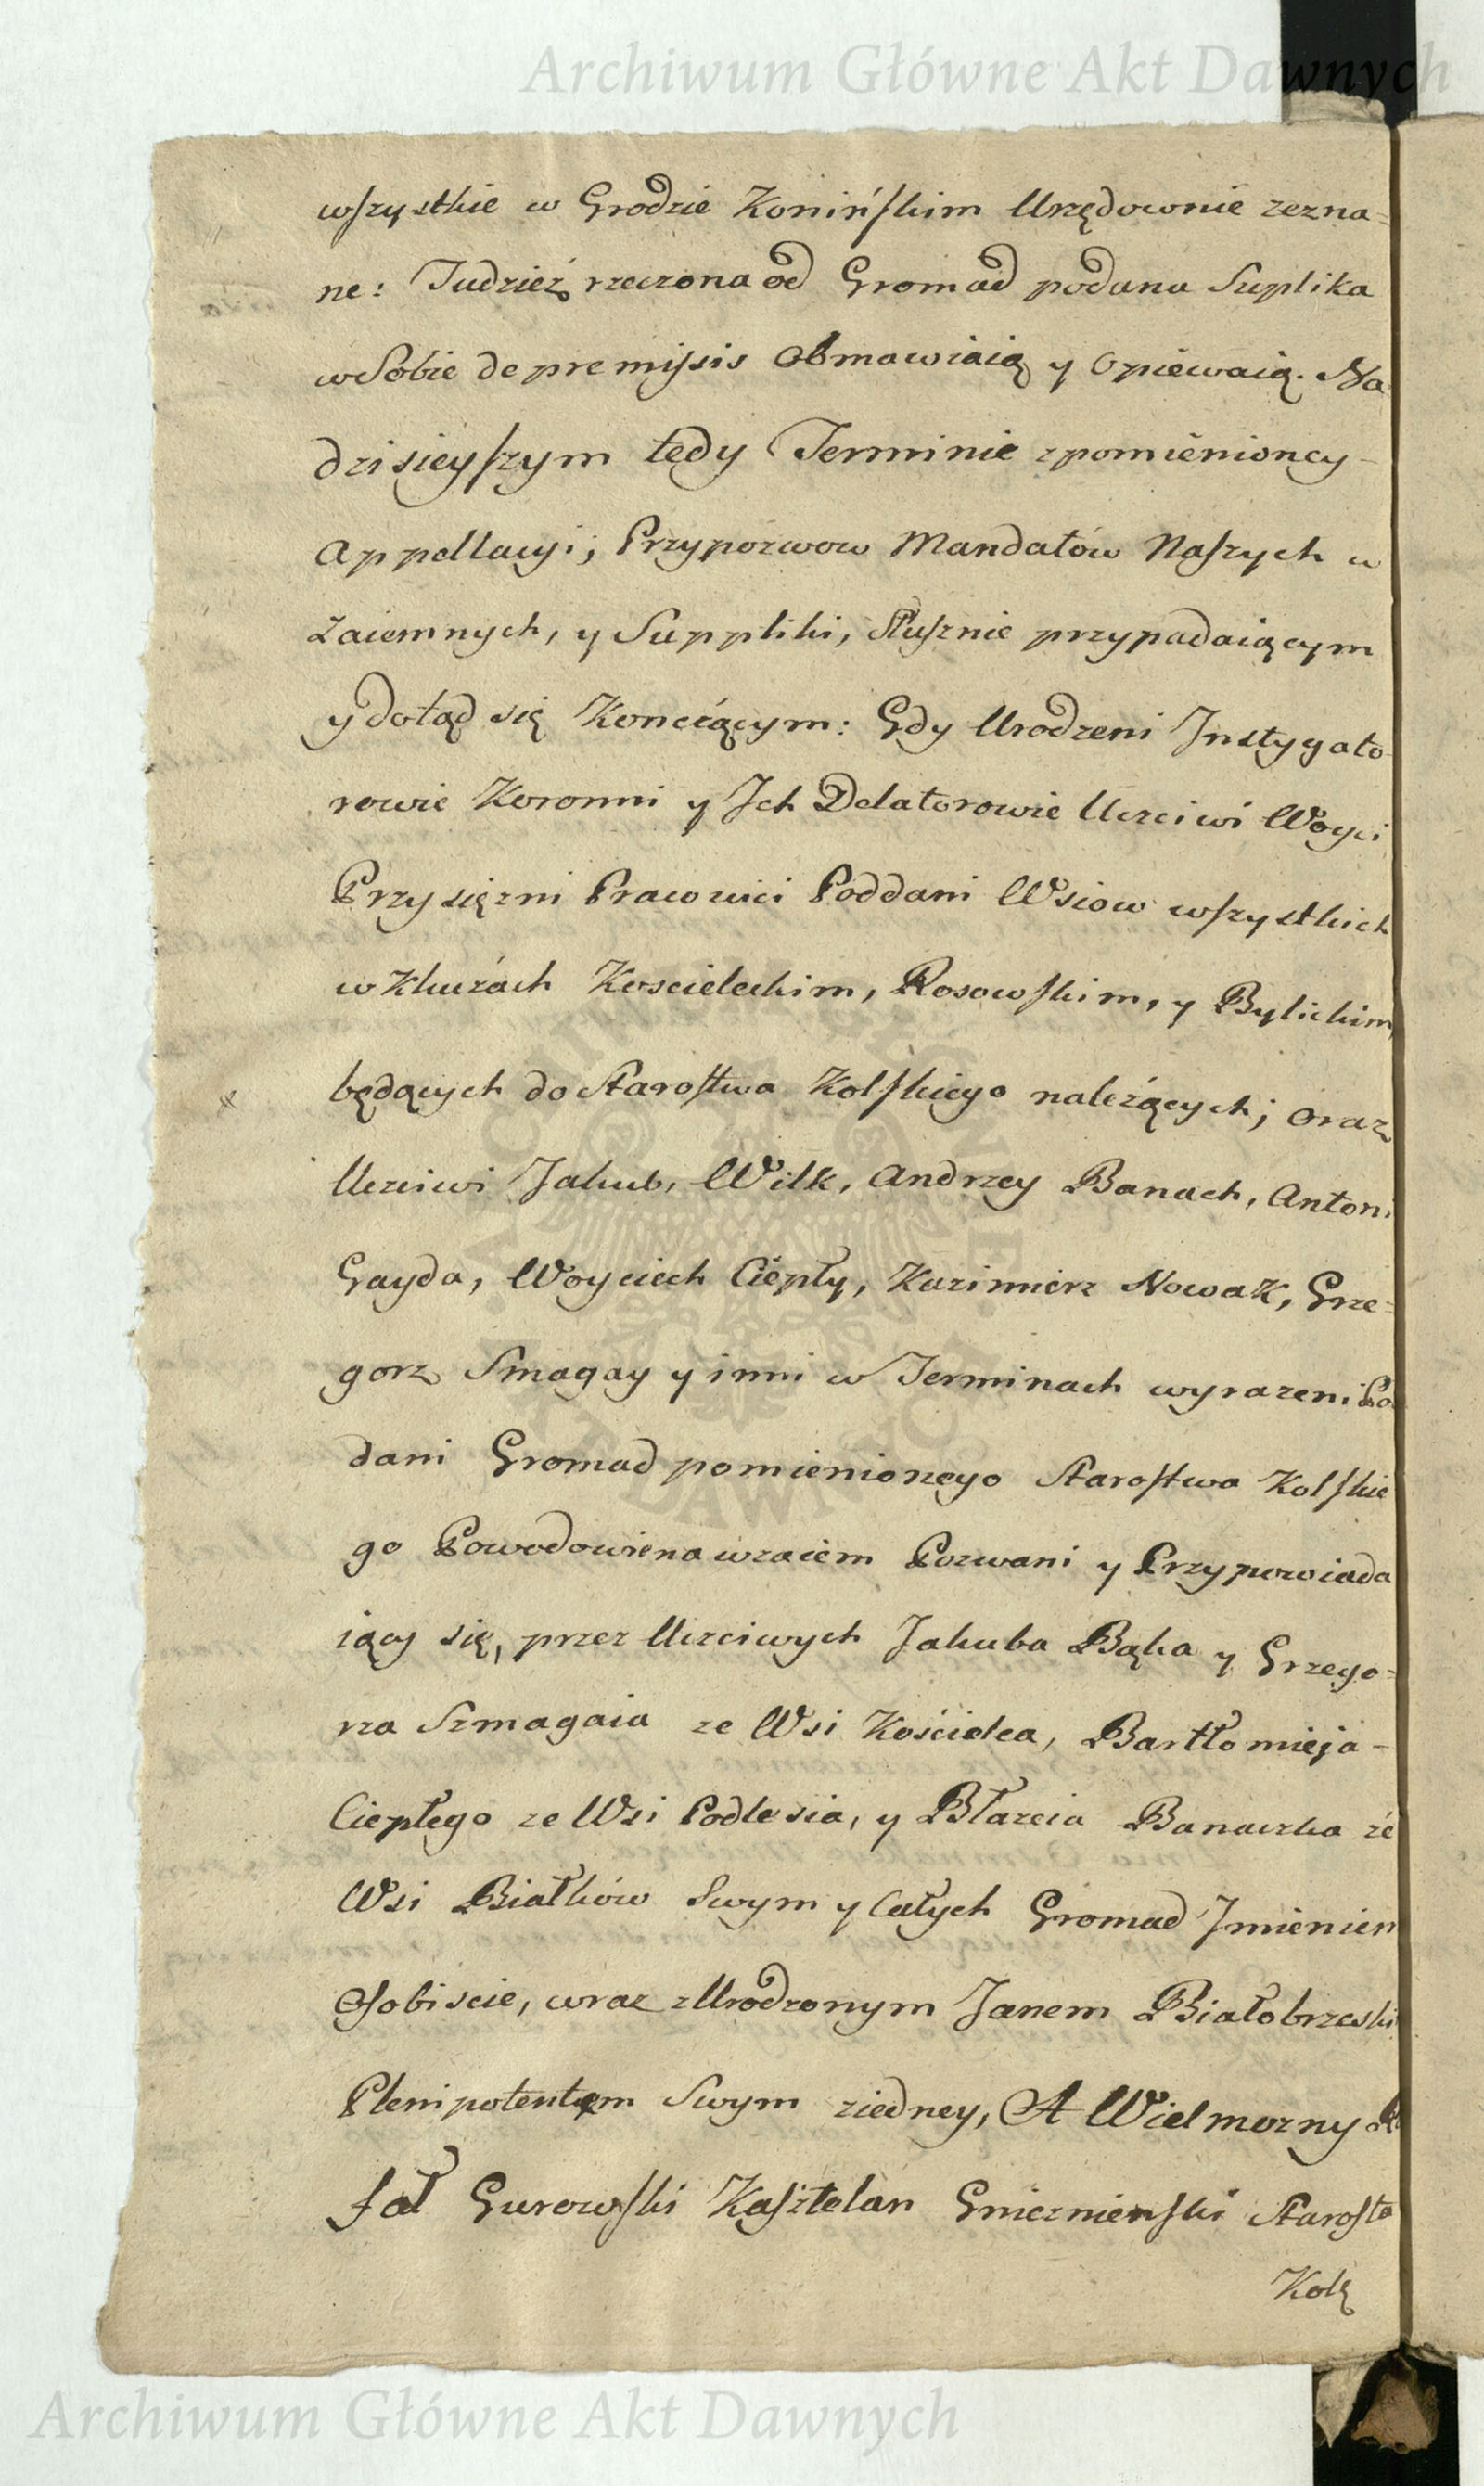 Archiwum Główne Akt Dawnych
wszystkie w Grodzie Konińskim Urzędownie zezna=
ne: Tudzież rzeczona od Gromad podana Suplika
w Sobie de premissis Obmawiaią y Opiewaią. Na
dzisieyszym tedy Terminie zpomienioney
Appellacyi, Przypozwow Mandatów Naszych w
zaiemnych, y Suppliki, Słusznie przypadaiącym
y dotąd się Kończącym: Gdy Urodzeni Instygato
rowie Koronni y Ich Delatorowie Uczciwi Woyci
Przysiężni Pracowici Poddani Wsiow wszystkich
w Kluczach Koscieleckim, Rosowskim, y Bylickim
będących do Starostwa Kolskiego należących; oraz
Uczciwi Jakub, Wilk, Andrzey Banach, Antoni
Gayda, Woyciech Ciepły, Kazimierz Nowak, Grze=
gorz Smagay y inni w Terminach wyrażeni Po
dani Gromad pomienionego Starostwa Kolskie
go Powodowie nawzaiem Pozwani y Przypowiada
iący się, przez Uczciwych Jakuba Bąka y Grzego=
rza Szmagaia ze Wsi Kościelca, Bartłomieja
Ciepłego ze Wsi Podlesia, y Błażeia Banaczka ze
Wsi Białków Swym y Całych Gromad Imieniem
Osobiscie, wraz z Urodzonym Janem Białobrzeski
Plenipotentem Swym ziedney, A Wielmożny Ra
fał Gurowski Kasztelan Gnieznienski Starosta
Archiwum Główne Akt Dawnych